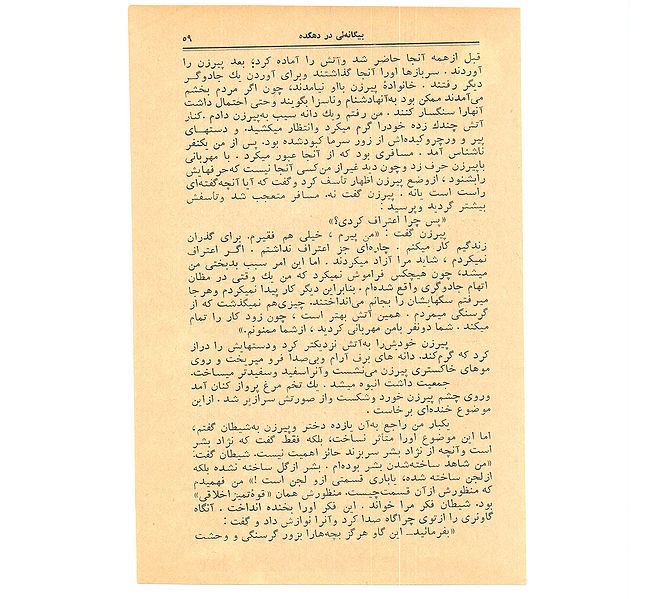 بیگانه‌ئی در دهکده
۵۹
قبل ازهمه آنجا حاضر شد وآتش را آماده کرد؛ بعد پیرزن را
آوردند . سربازها اورا آنجا گذاشتند وبرای آوردن یك جادوگر
دیگر رفتند . خانوادهٔ پیرزن بااو نیامدند، چون اگر مردم بخشم
می‌آمدند ممکن بود به‌آنهادشنام وناسزا بگویند وحتی احتمال داشت
آنهارا سنگسار کنند . من رفتم ویك دانه سیب به‌پیرزن دادم . کنار
آتش چندك زده خودرا گرم میکرد وانتظار میکشید. و دستهای
پیر و ورچروکیده‌اش از زور سرما کبودشده بود. پس از من یکنفر
ناشناس آمد . مسافری بود که از آنجا عبور میکرد . با مهربانی
باپیرزن حرف زد وچون دید غیراز من‌کسی آنجا نیست که‌حرفهایش
رابشنود ، ازوضع پیرزن اظهار تأسف کرد وگفت که آیا آنچه‌گفته‌ای
راست است یانه . پیرزن گفت نه. مسافر متعجب شد وتأسفش
بیشتر گردید وپرسید :
«پس چرا اعتراف کردی؟»
پیرزن گفت : «من پیرم ، خیلی هم فقیرم. برای گذران
زندگیم کار میکنم . چاره‌ای جز اعتراف نداشتم . اگر اعتراف
نمیکردم ، شاید مرا آزاد میکردند . اما این امر سبب بدبختی من
میشد، چون هیچکس فراموش نمیکرد که من یك وقتی در مظان
اتهام جادوگری واقع شده‌ام . بنابراین دیگر کار پیدا نمیکردم وهرجا
میرفتم سگهایشان را بجانم می‌انداختند. چیزی‌هم نمیگذشت که از
گرسنگی میمردم . همین آتش بهتر است ، چون زود کار را تمام
میکند . شما دونفر بامن مهربانی کردید ، ازشما ممنونم.»
پیرزن خودش‌را به‌آتش نزدیکتر کرد ودستهایش را دراز
کرد که گرم‌کند. دانه های برف آرام وبی‌صدا فرو میریخت و روی
موهای خاکستری پیرزن می‌نشست وآنراسفید وسفیدتر میساخت.
جمعیت داشت انبوه میشد . یك تخم مرغ پرواز کنان آمد
وروی چشم پیرزن خورد وشکست واز صورتش سرازیر شد . ازاین
موضوع خنده‌ای برخاست .
یکبار من راجع به‌آن یازده دختر وپیرزن به‌شیطان گفتم،
اما این موضوع اورا متأثر نساخت، بلکه فقط گفت که نژاد بشر
است وآنچه از نژاد بشر سربزند حائز اهمیت نیست. شیطان گفت:
«من شاهد ساخته‌شدن بشر بوده‌ام . بشر ازگل ساخته نشده بلکه
ازلجن ساخته شده، یاباری قسمتی ازو لجن است !» من فهمیدم
که منظورش ازآن قسمت‌چیست. منظورش همان «قوهٔ‌تمیز‌اخلاقی»
بود. شیطان فکر مرا خواند . این فکر اورا بخنده انداخت . آنگاه
گاونری را ازتوی چراگاه صدا کرد وآنرا نوازش داد و گفت :
«بفرمائید_ این گاو هرگز بچه‌هارا بزور گرسنگی و وحشت